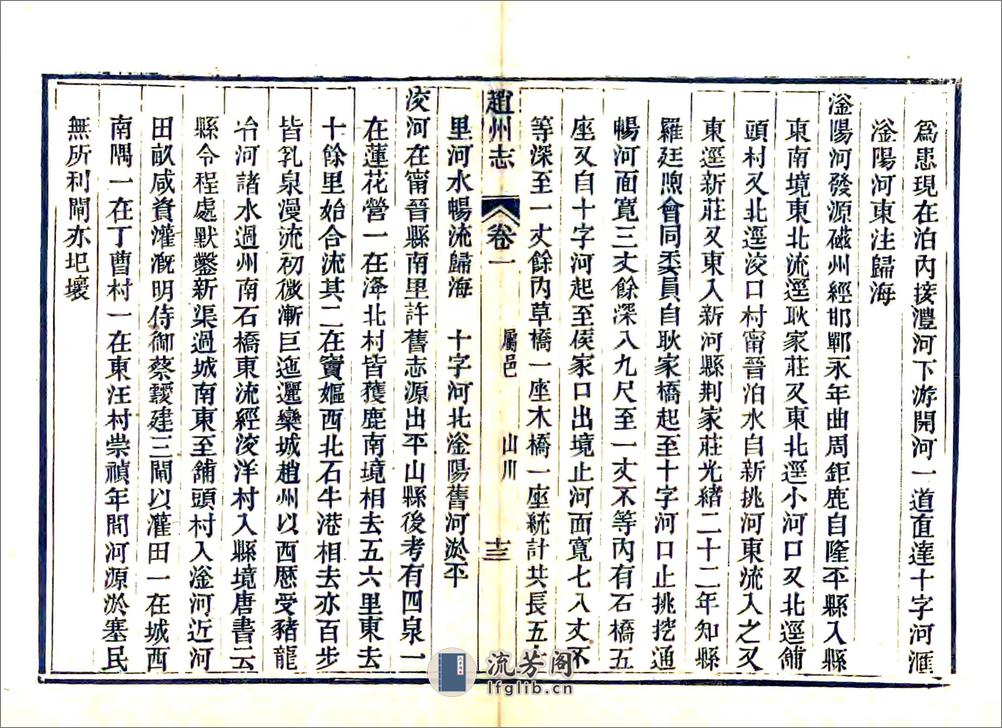 爲患現在泊內接灃河下游開河一道直達十字河滙
滏陽河東注歸海
滏陽河發源磁州經邯鄲永年曲周鉅鹿自隆平縣入縣
東南境東北流逕耿家莊又東北逕小河口又北逕舖
頭村又北逕洨口村甯晉泊水自新挑河東流入之又
東逕新莊又東入新河縣荆家莊光緒二十二年知縣
羅廷煦會同委員自耿家橋起至十字河口止挑挖通
暢河面寬三丈餘深八九尺至一丈不等內有石橋五
座又自十字河起至侯家口出境止河面寬七八丈不
等深至一丈餘內草橋一座木橋一座統計共長五十
趙州志
卷一
屬邑
山川
十三
里河水暢流歸海 十字河北滏陽舊河淤平
洨河在甯晉縣南里許舊志源出平山縣後考有四泉一
在蓮花營一在洚北村皆獲鹿南境相去五六里東去
十餘里始合流其二在竇嫗西北石牛港相去亦百步
皆乳泉漫流初微漸巨迤邐欒城趙州以西歷受豬龍
冶河諸水過州南石橋東流經洨洋村入縣境唐書云
縣令程處默鑿新渠過城南東至舖頭村入滏河近河
田畝咸資灌漑明侍御蔡靉建三閘以灌田一在城西
南隅一在丁曹村一在東汪村崇禎年間河源淤塞民
無所利閘亦圮壞
流芳阁
lfglib.cn